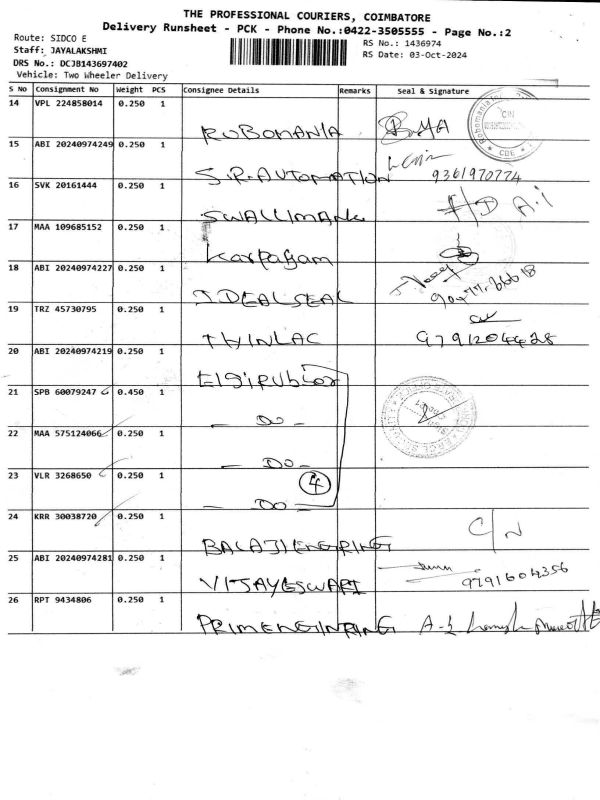 THE PROFESSIONAL COURIERS, COIMBATORE
Delivery Runsheet - PCK - Phone No.:0422-3505555 - Page No.:2
Route: SIDCO E
RS No.: 1436974
Staff: JAYALAKSHMI
RS Date: 03-Oct-2024
DRS No.: DCJB143697402
Vehicle: Two Wheeler Delivery
S No Consignment No Weight PCS Consignee Details Remarks Seal & Signature
14 VPL 224858014 0.250 1
ROBOMANIA
CBE
15 ABI 20240974249 0.250 1
S.R. AUTOMATION 9361970774
16 SVK 20161444 0.250 1
SWALLMANK
17 MAA 109685152 0.250 1
Karpagam
18 ABI 20240974227 0.250 1
IDEAL SEAL
19 TRZ 45730795 0.250 1
TWINLAC 9791204428
20 ABI 20240974219 0.250 1
21 SPB 60079247 0.450 1
- DO -
22 MAA 575124066 0.250 1
- DO -
23 VLR 3268650 0.250 1
4
- DO -
24 KRR 30038720 0.250 1
BALAJI ENGRING
25 ABI 20240974281 0.250 1
VIJAYESWARI 9791604356
26 RPT 9434806 0.250 1
PRIM ENGINRING